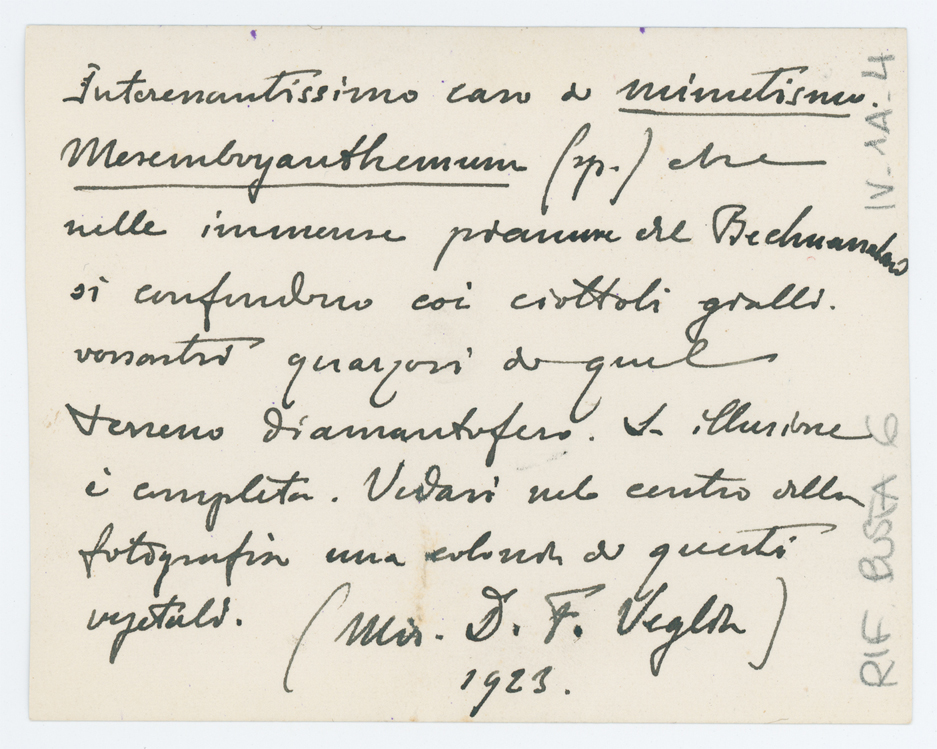 Interessantissimo caso di mimetismo.
Mesembryanthemum (sp.) che
nelle immense pianure del Bechuanaland
si confondono coi ciottoli gialli.
rossastri quarzosi di quel
terreno diamantifero. L'illusione
è completa. Vedasi nel centro della
fotografia una colonia di questi
vegetali. (Mis. D. F. Veglia)
1923.
IV-1A-4
RIF BUSTA 6